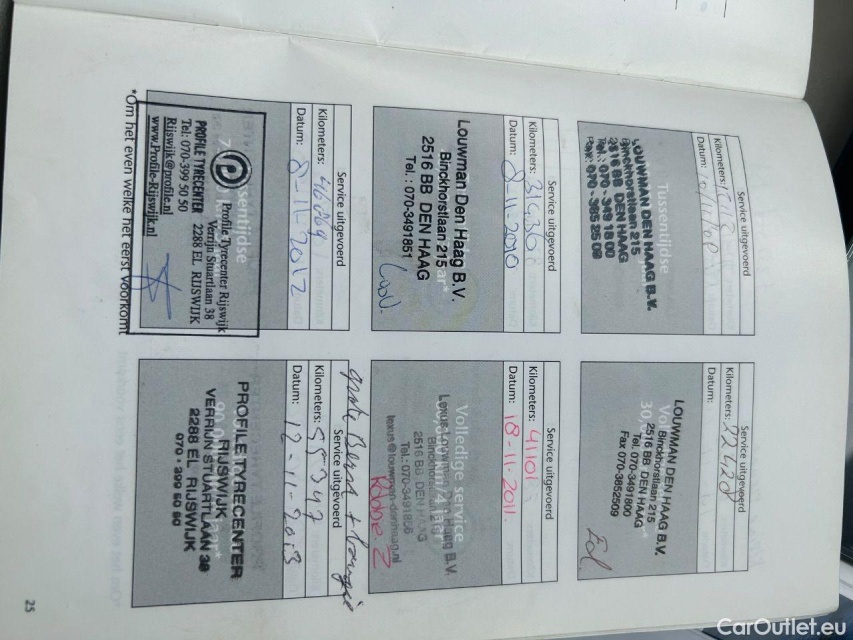 Service uitgevoerd
Kilometers:
Datum:
Tussentijdse
LOUWMAN DEN HAAG B.V.
Binckhorstlaan 215
2516 BB DEN HAAG
Tel.: 070 - 349 18 00
Fax: 070 - 385 25 09
Service uitgevoerd
Kilometers: 22420
Datum:
LOUWMAN DEN HAAG B.V.
Binckhorstlaan 215
2516 BB DEN HAAG
Tel. 070-3491800
Fax 070-3852509
Service uitgevoerd
Kilometers: 31936
Datum: 8-11-2010
Louwman Den Haag B.V.
Binckhorstlaan 215
2516 BB DEN HAAG
Tel.: 070-3491851
Service uitgevoerd
Kilometers: 41101
Datum: 18-11-2011.
Volledige service
Lexus Louwman Den Haag B.V.
Binckhorstlaan
2516 BB DEN HAAG
Tel.: 070-3491856
lexus@louwman-denhaag.nl
Service uitgevoerd
Kilometers: 46889
Datum: 8-11-2012
Profile Tyrecenter Rijswijk
Verrijn Stuartlaan 38
2288 EL RIJSWIJK
PROFILE TYRECENTER
Tel: 070-399 50 50
Rijswijk@profile.nl
www.Profile-Rijswijk.nl
grote Beurt + bougie
Service uitgevoerd
Kilometers: 55347
Datum: 12-11-2013
PROFILE TYRECENTER
RIJSWIJK
VERRIJN STUARTLAAN 38
2288 EL RIJSWIJK
070 - 399 50 50
*Om het even welke het eerst voorkomt
25
CarOutlet.eu